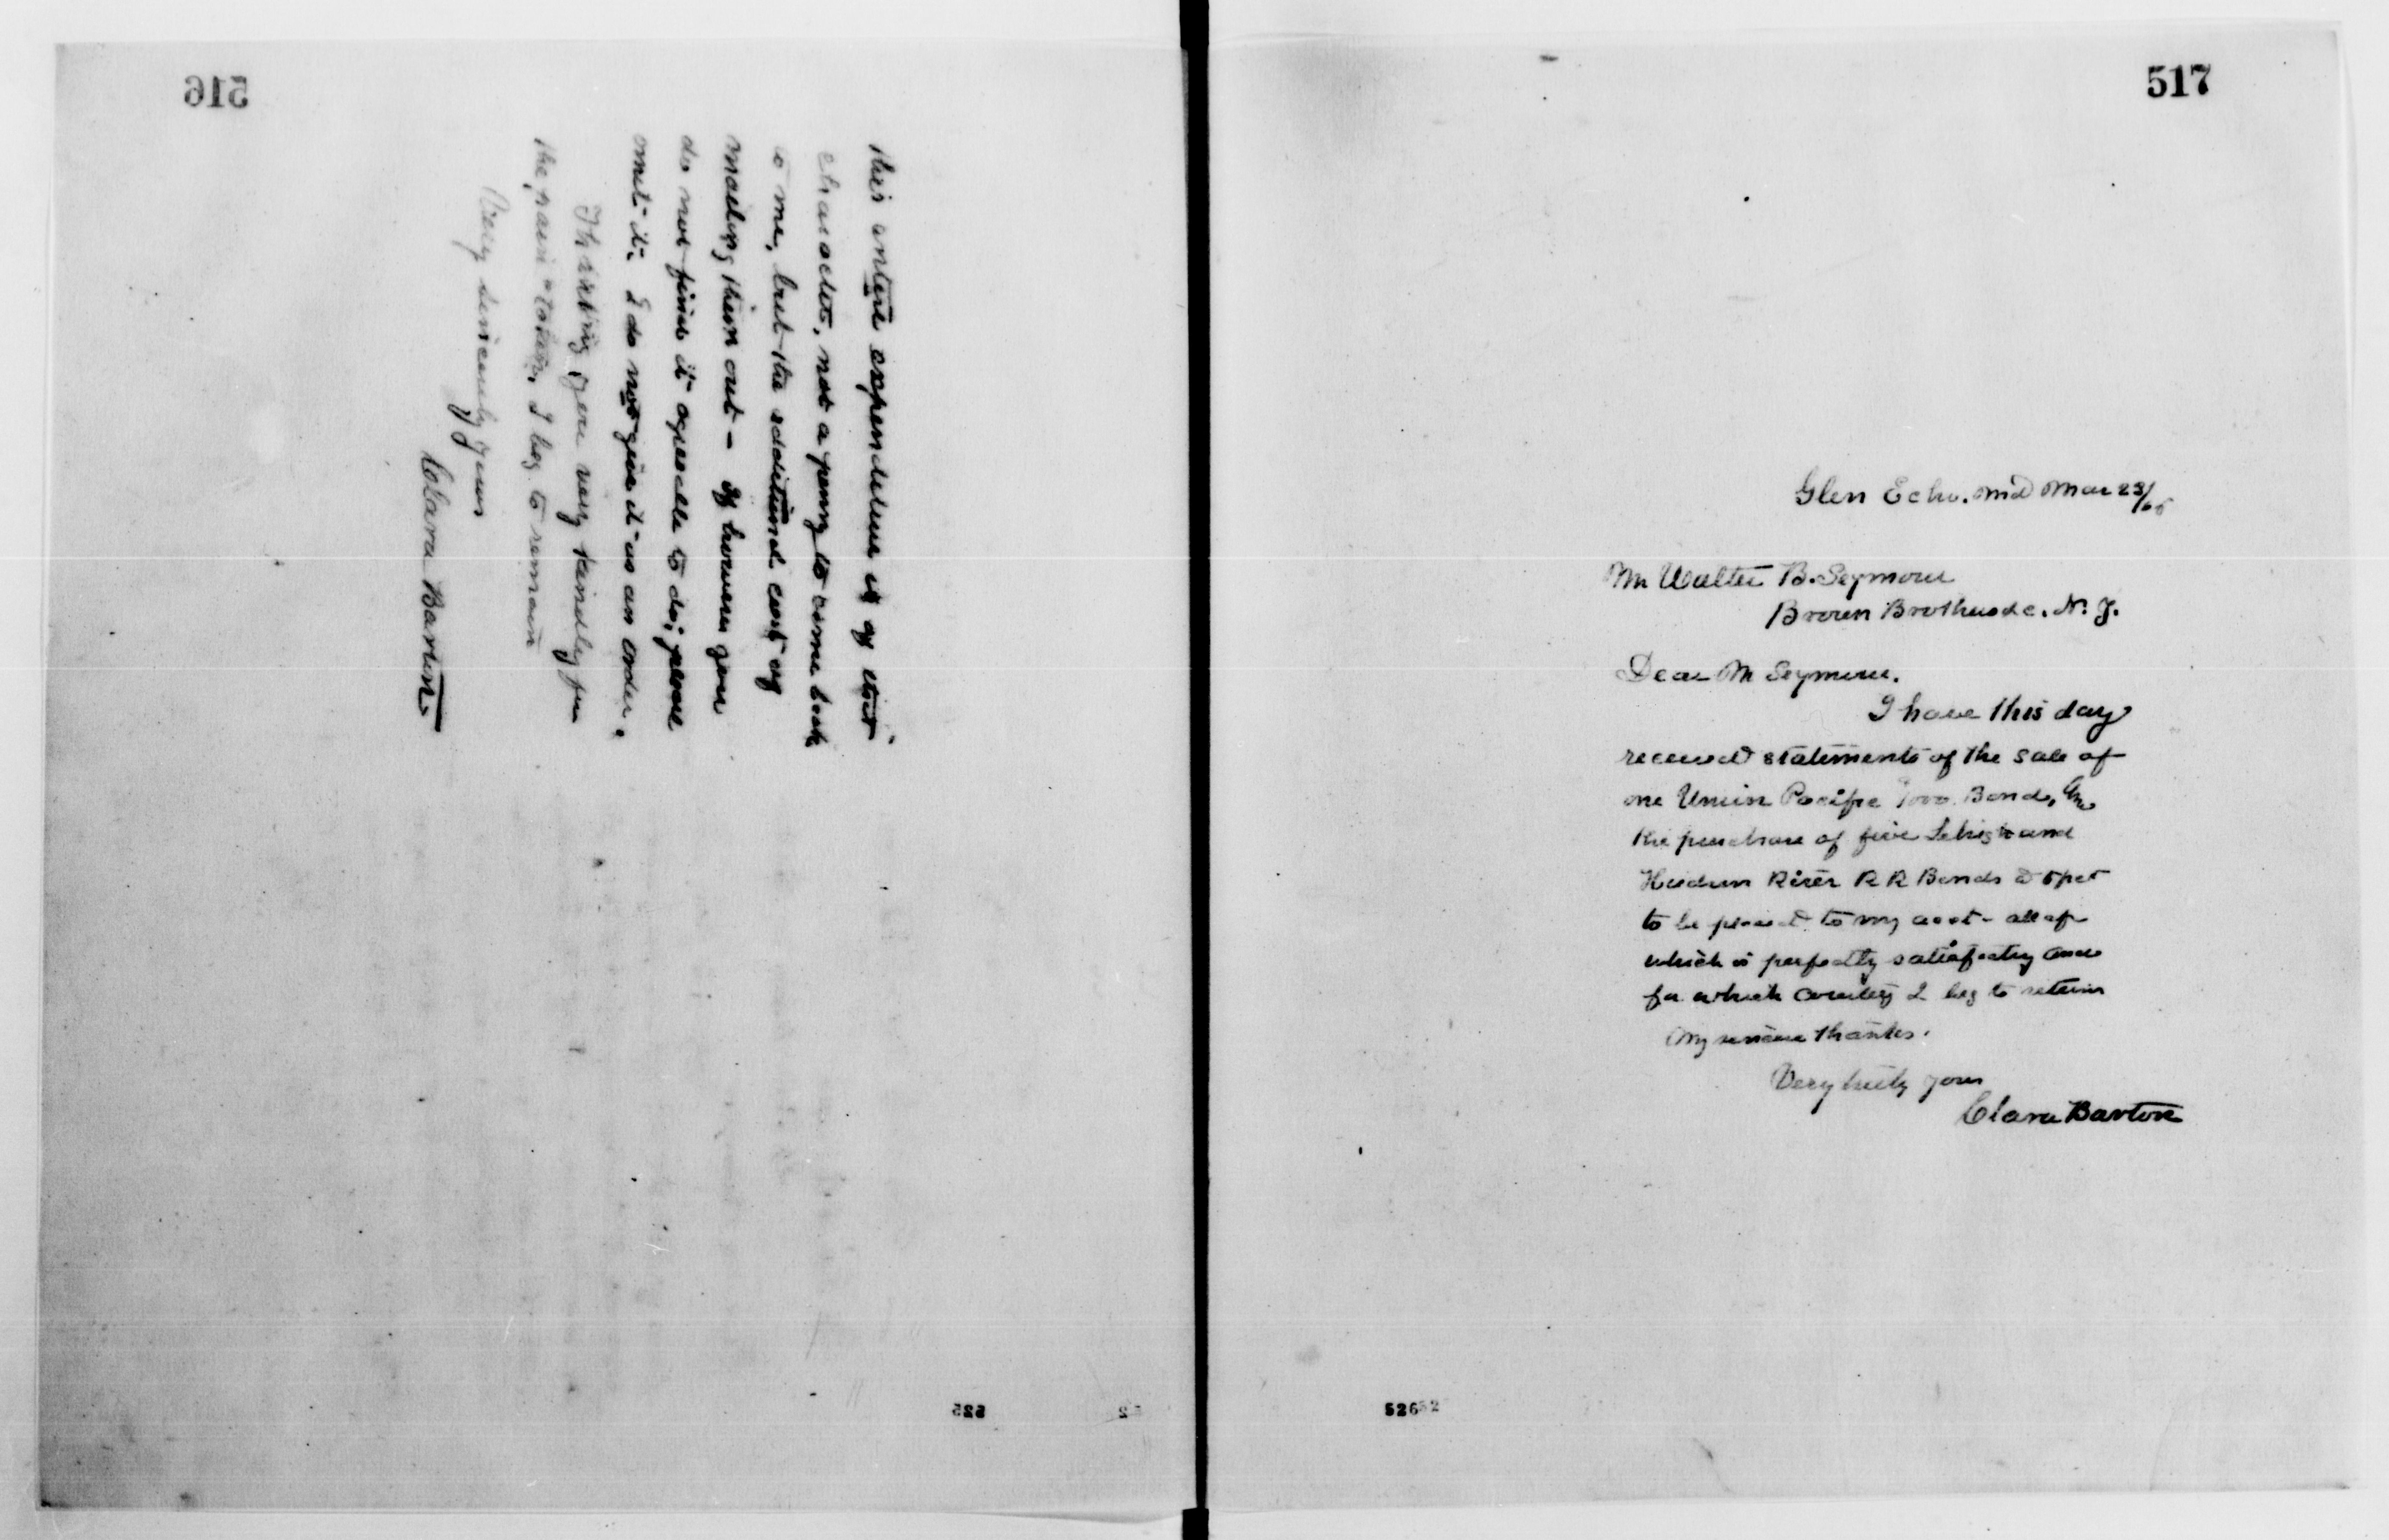 516
this entire expenditure is of that
character, not a penny to come back
to me, but the additional cost of
making them out - If however you
do not find it agreeable to do, please
omit it. I do not give it as an order.
Thanking you very kindly for
the pains taken, I beg to remain
Very sincerely yours
Clara Barton
525
517
Glen Echo. Md Mar 23/
Mr Walter B. Seymour
Brown Brothers & c. N. Y.
Dear Mr Seymour.
I have this day
received statements of the sale of
one Union Pacific Bond,
the purchase of five Lehigh and
Hudson River R R Bonds
to be placed to my acct - all of
which is perfectly satisfactry and
for which courtesy I beg to return
my sincere thanks.
Very truly yours
Clara Barton
526